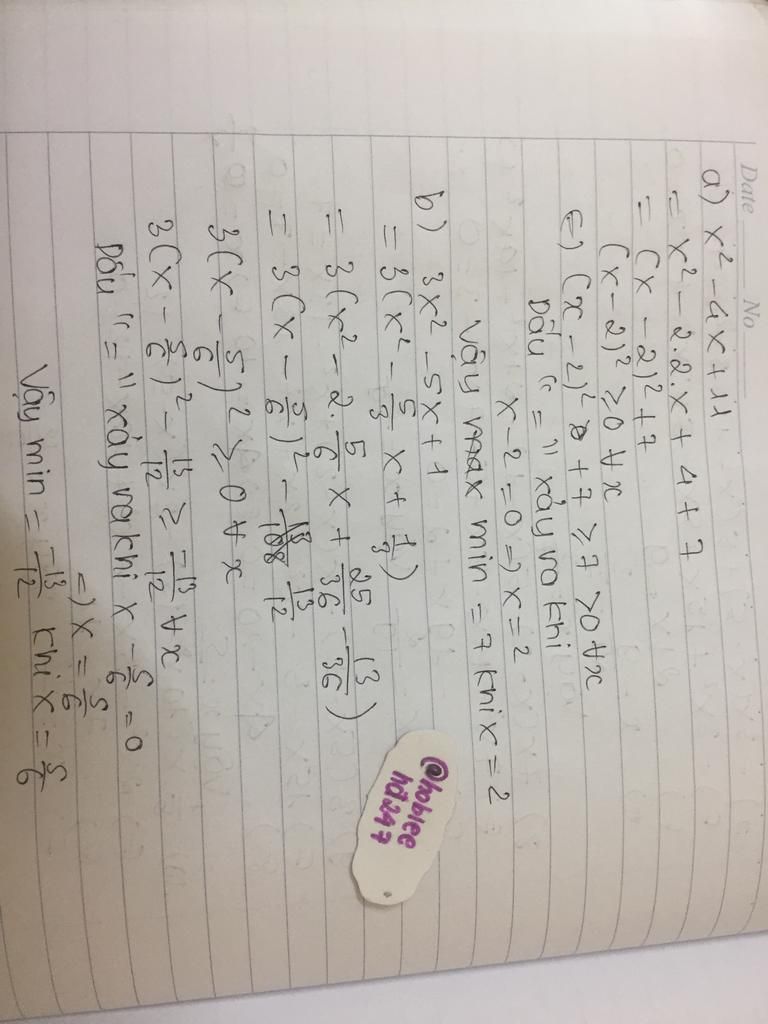 Date No
a) x² - 4x + 11
= x² - 2.2.x + 4 + 7
= (x - 2)² + 7
(x - 2)² ≥ 0 ∀x
(x - 2)² + 7 ≥ 7 >0 ∀x
Dấu "=" xảy ra khi
x - 2 = 0 => x = 2
Vậy min = 7 khi x = 2
b) 3x² - 5x + 1
= 3(x² - 5/3 x + 1/3)
= 3(x² - 2. 5/6 x + 25/36 - 13/36)
= 3(x - 5/6)² - 13/12
3(x - 5/6)² ≥ 0 ∀x
3(x - 5/6)² - 13/12 ≥ -13/12 ∀x
Dấu "=" xảy ra khi x - 5/6 = 0
=> x = 5/6
Vậy min = -13/12 khi x = 5/6
@hoblee
hd247